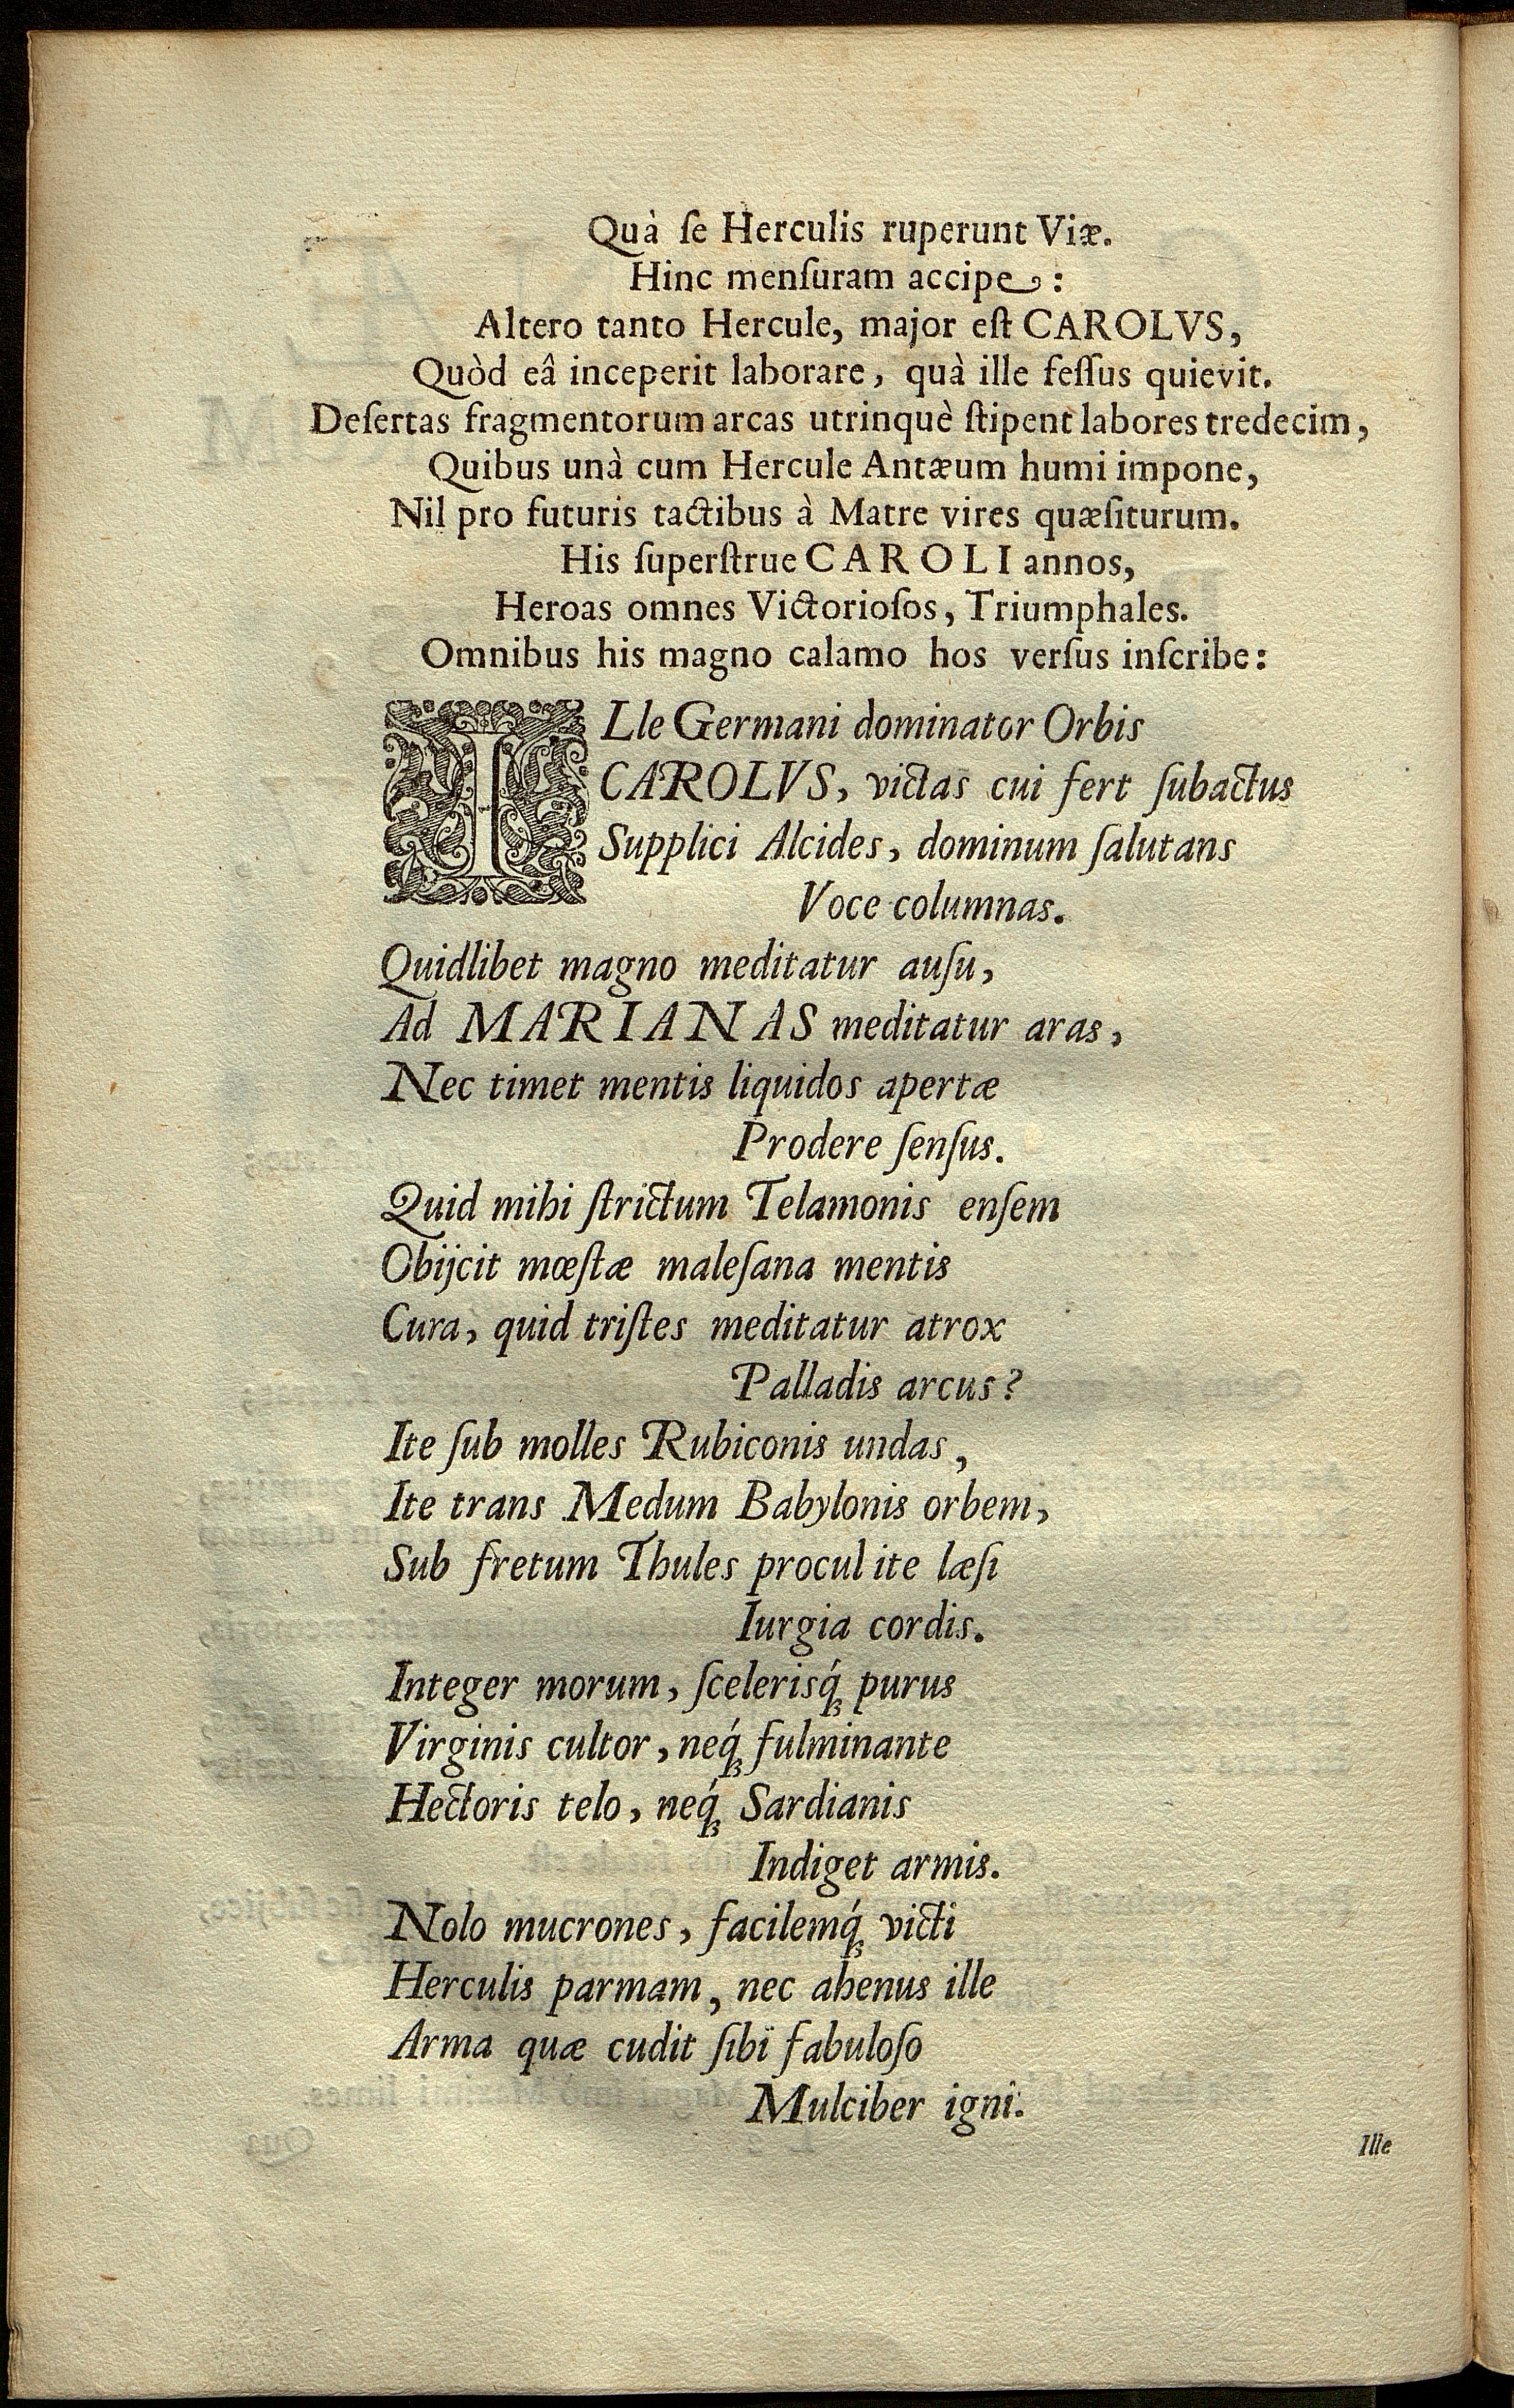 Quà ſe Herculis ruperunt Viæ.
Hinc menſuram accipe:
Altero tanto Hercule, major eſt CAROLVS,
Quòd eâ inceperit laborare, quà ille feſſus quievit.
Deſertas fragmentorum arcas utrinquè ſtipent labores tredecim,
Quibus unà cum Hercule Antæum humi impone,
Nil pro futuris tactibus à Matre vires quæſiturum.
His ſuperſtrue CAROLI annos,
Heroas omnes Victorioſos, Triumphales.
Omnibus his magno calamo hos verſus inſcribe:
ILle Germani dominator Orbis
CAROLVS, victas cui fert ſubactus
Supplici Alcides, dominum ſalutans
Voce columnas.
Quidlibet magno meditatur auſu,
Ad MARIANAS meditatur aras,
Nec timet mentis liquidos apertæ
Prodere ſenſus.
Quid mihi ſtrictum Telamonis enſem
Obijcit mœſtæ maleſana mentis
Cura, quid triſtes meditatur atrox
Palladis arcus?
Ite ſub molles Rubiconis undas,
Ite trans Medum Babylonis orbem,
Sub fretum Thules procul ite læſi
Iurgia cordis.
Integer morum, ſcelerisq́ꝫ purus
Virginis cultor, neq́ꝫ fulminante
Hectoris telo, neq́ꝫ Sardianis
Indiget armis.
Nolo mucrones, facilemq́ꝫ victi
Herculis parmam, nec ahenus ille
Arma quæ cudit ſibi fabuloſo
Mulciber igni.
Ille